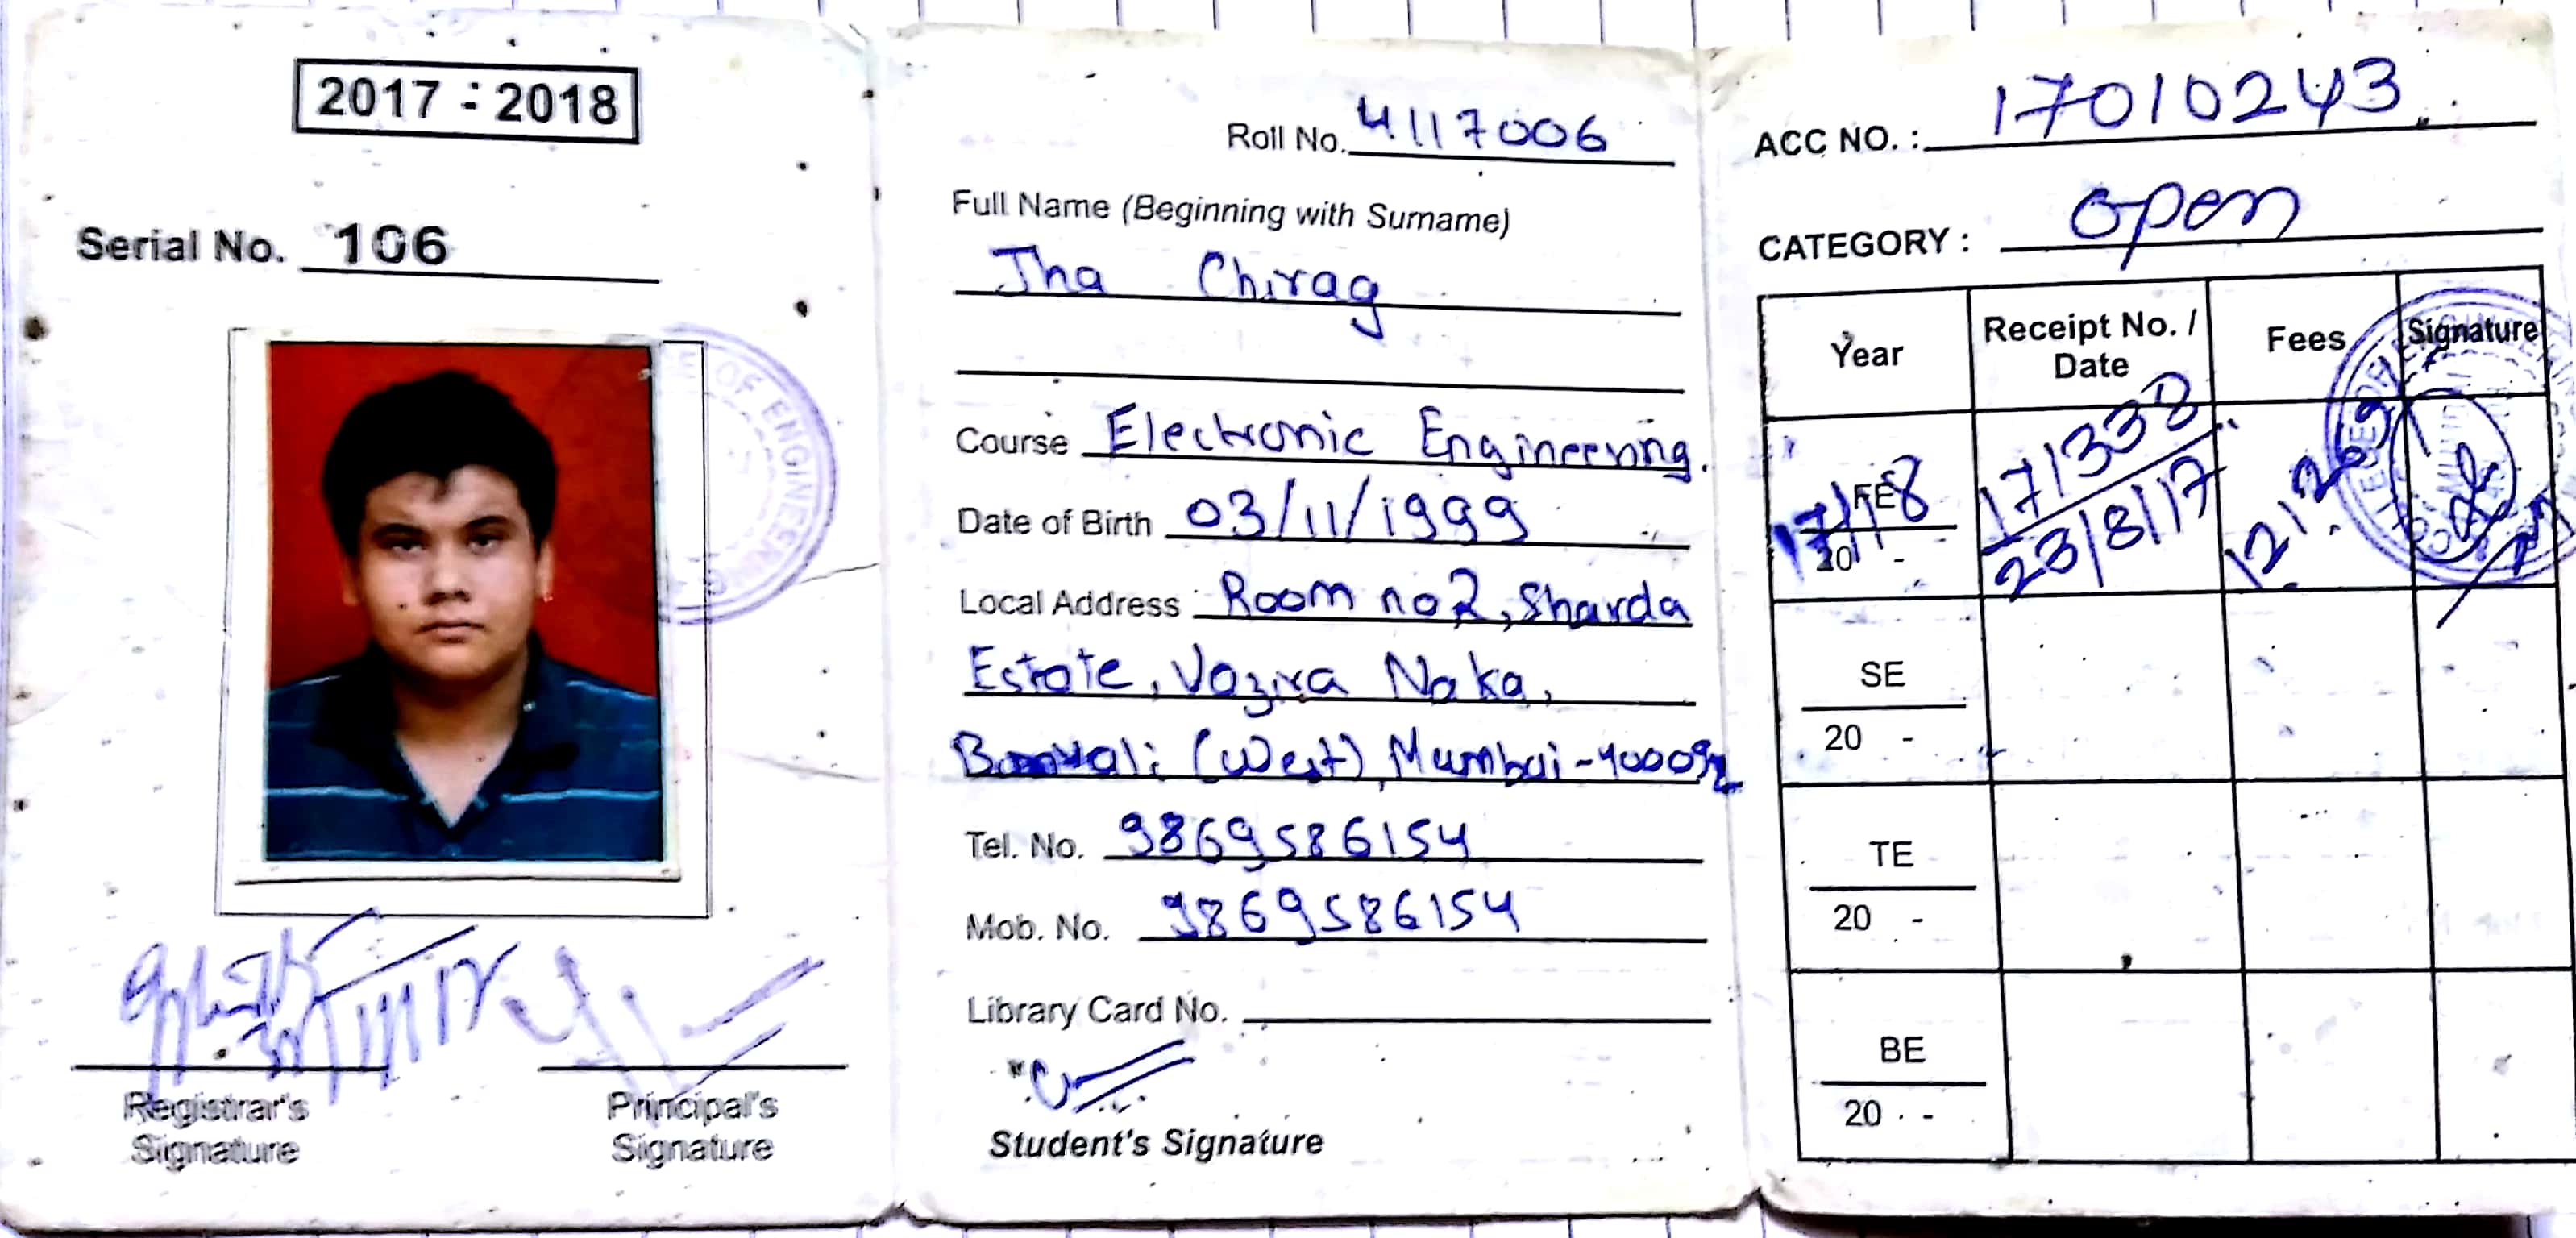 2017 - 2018
Serial No. 106
OF ENGINEERING
Registrar's
Signature
Principal's
Signature
Roll No. 4117006
Full Name (Beginning with Surname)
Jha Chirag
Course Electronic Engineering.
Date of Birth 03/11/1999
Local Address Room no 2, Sharda
Estate, Vazira Naka,
(West), Mumbai-400092
Tel. No. 9869586154
Mob. No. 9869586154
Library Card No.
Student's Signature
ACC NO. : 17010243
CATEGORY : Open
Year Receipt No. / Date Fees Signature
FE 17/18 20 - 171338 23/8/17
SE
20 -
TE
20 -
BE
20 -